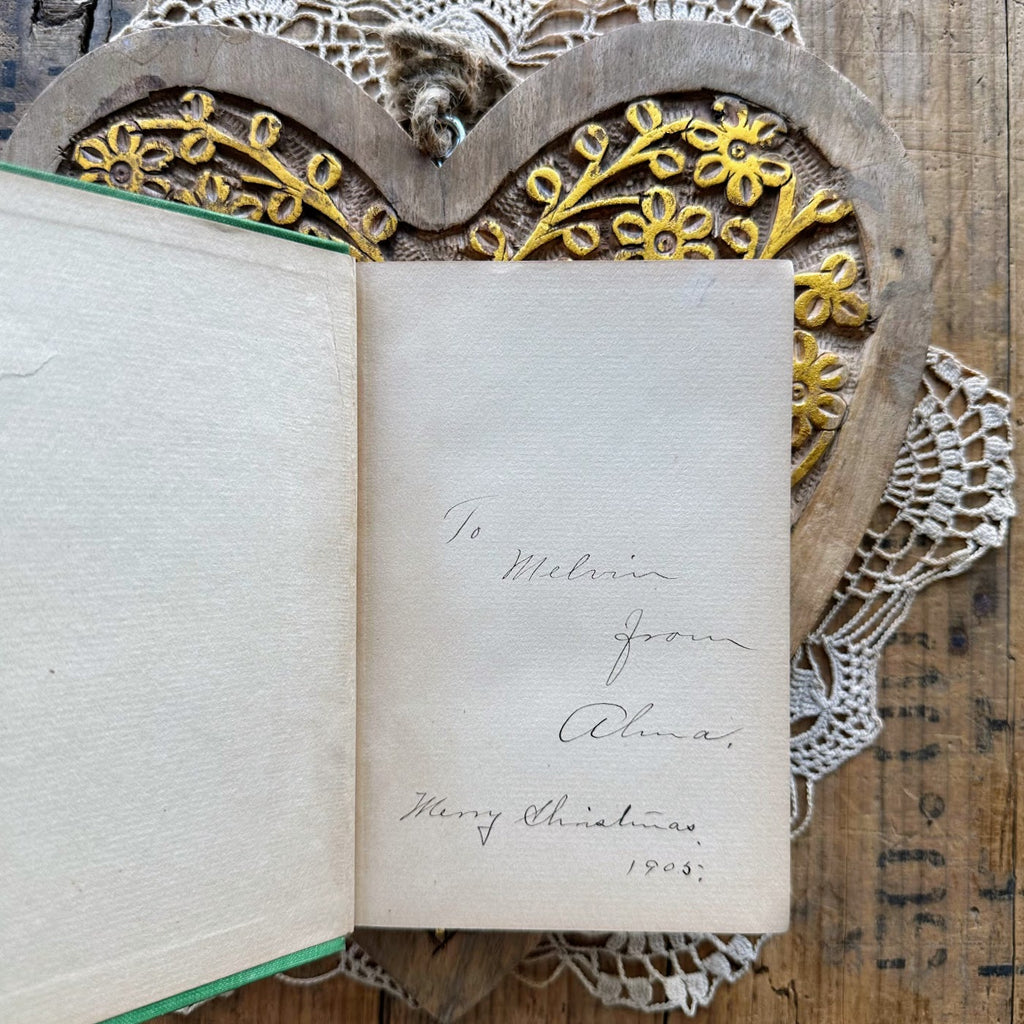 To
Melvin
from
Alma.
Merry Christmas
1905.